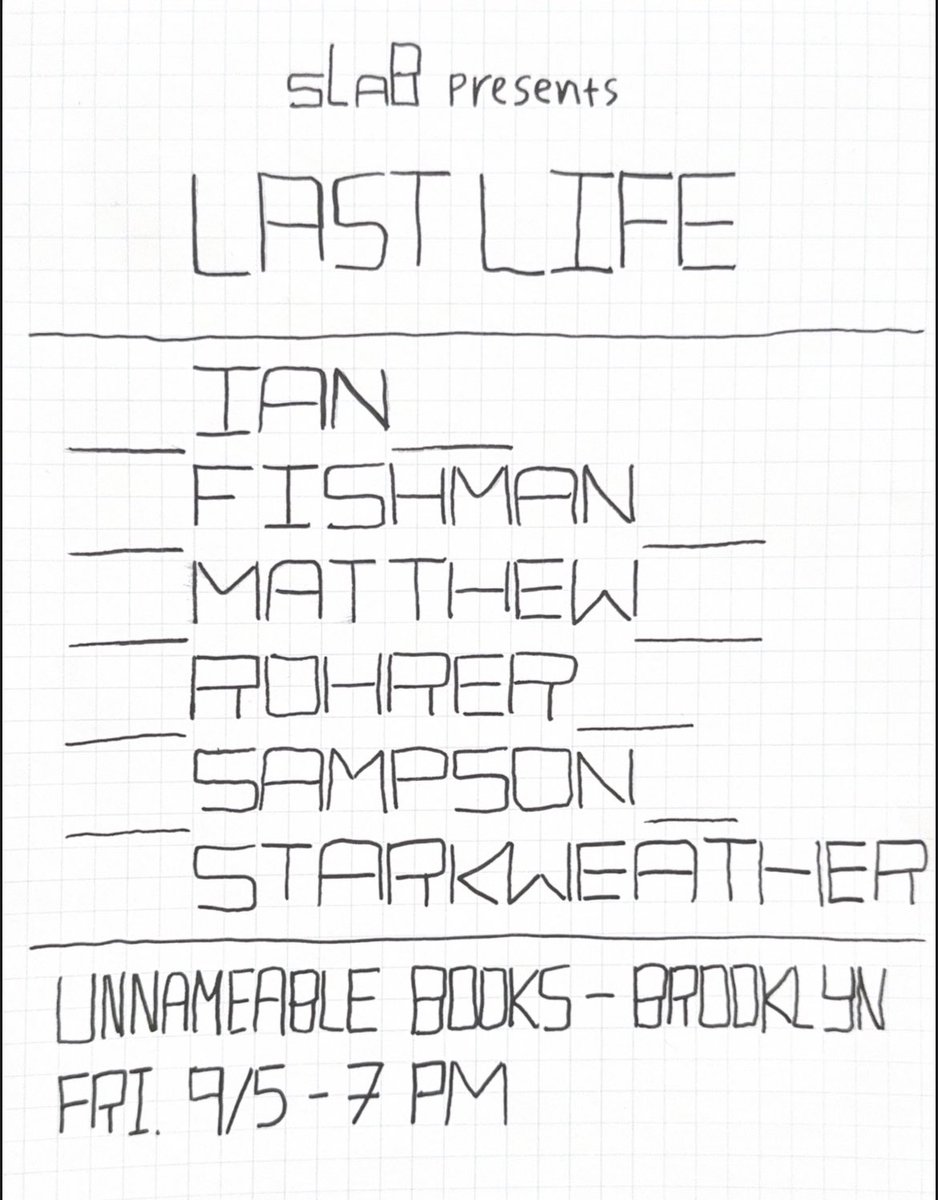 sLAB presents
LAST LIFE
IAN
FISHMAN
MATTHEW
ROHRER
SAMPSON
STARKWEATHER
UNNAMEABLE BOOKS - BROOKLYN
FRI. 9/5 - 7 PM